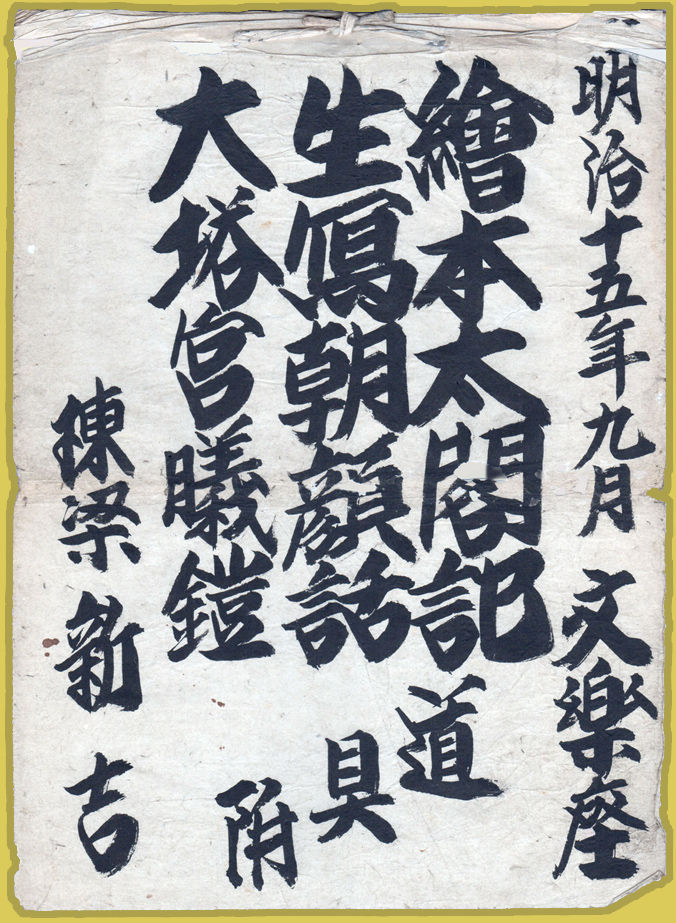 明治十五年九月 文楽座
繪本太閤記 道
生冩朝顔話 具
大塔宮曦鎧 附
棟梁 新吉